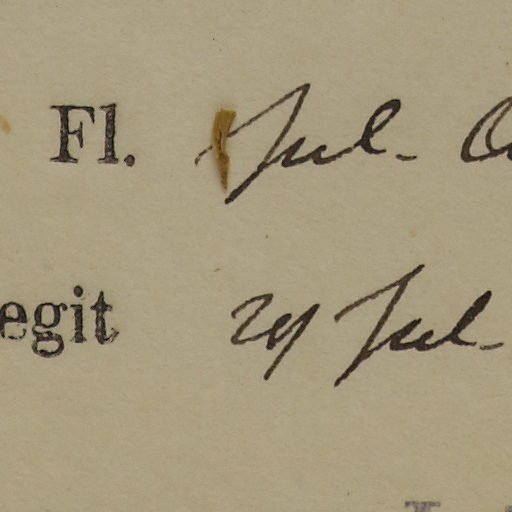 Fl. Jul-
egit 29 Jul-